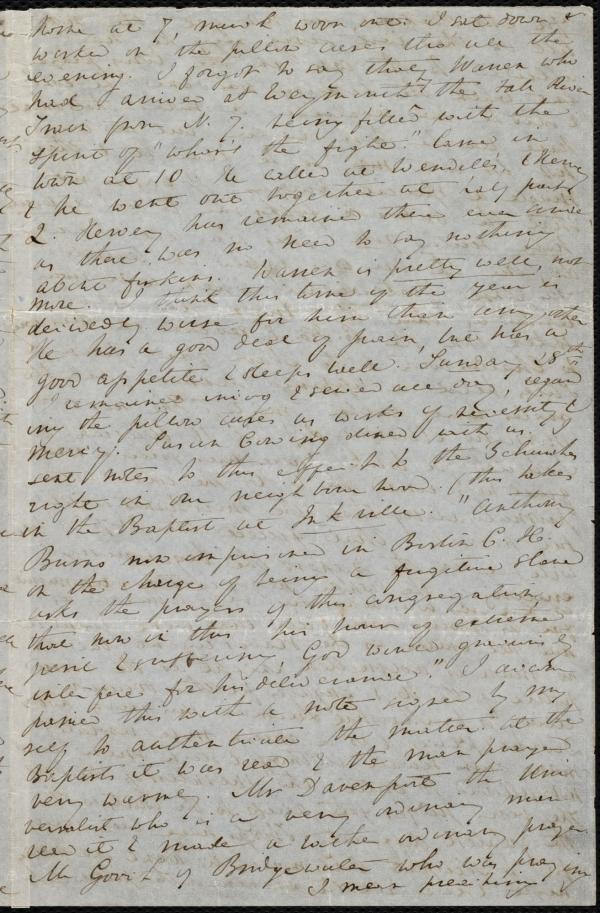 home at 7, much worn out. I sat down &
worked on the pillow cases tho' all the
evening. I forgot to say that Warren who
had arrived at Weymouth the Fall River
Train from N. Y. being filled with the
spirit of "where's the fight." Came in
town at 10. He called at Wendell's, & Henry
& he went out together at half past
2. Hervey has remained there ever since
as there was no need to say nothing
about Warren is pretty well, not
more. I think this time of the year is
decidedly worse for him than any other
He has a good deal of pain, but has a
good appetite & sleeps well. Sunday 28th
I remained in & sewed all day, regard
ing the pillow cases as works of necessity &
mercy. Susan Cowing dined with us. I
sent notes to this effect to the 3 churches
right in our neighbourhood. (this takes
in the Baptist at Ink ville. "Anthony
Burns now imprisoned in Boston C. H.
on the charge of being a fugitive slave
asks the prayers of this congregation,
that now in this his hour of extreme
peril & suffering, God would graciously
interfere for his deliverance." I accom
panied this with a note signed by my
self to authenticate the matter. At the
Baptists it was read & the man prayed
very warmly. Mr Davenport the Uni
versalist who is a very ordinary man
read it & made a rather ordinary prayer
Mr of Bridgewater who was praying
I mean preaching